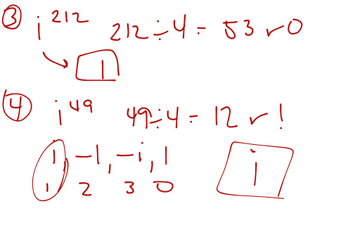 ③ i²¹² 212÷4= 53 r0
1
④ i⁴⁹ 49÷4= 12 r!
i, -1, -i, 1
1 2 3 0
i